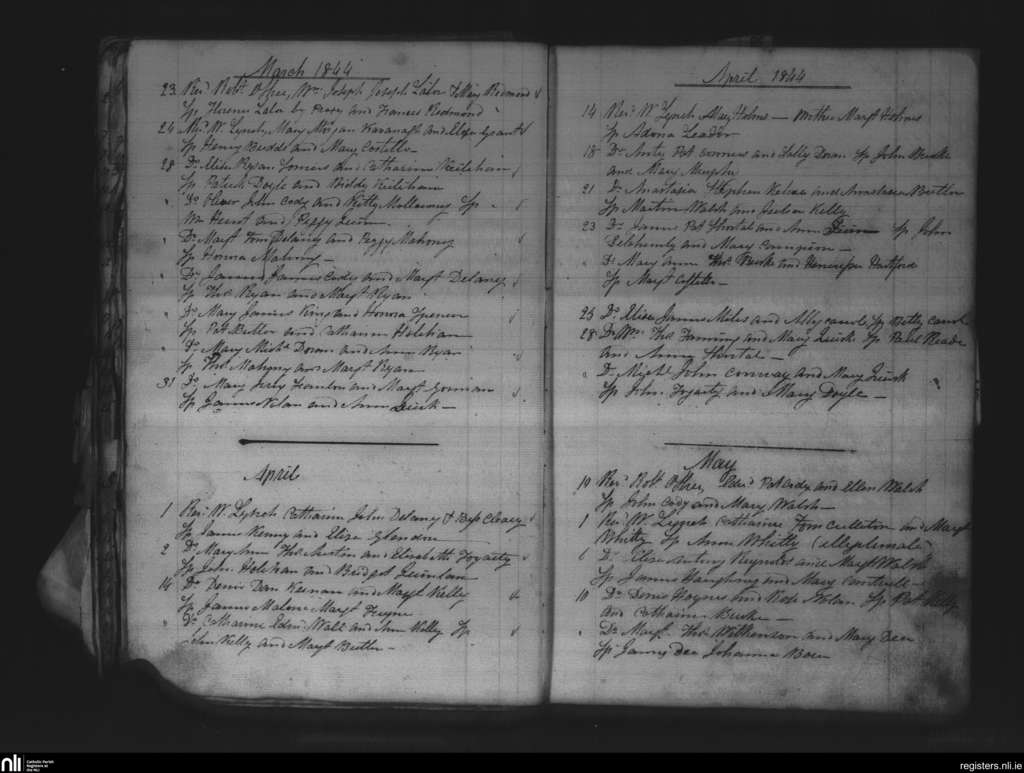 March 1844
23 Revd Robt O'Shee, Wm Joseph Joseph Lalor & Mary Redmond
Sp Florence Lalor by Proxy and Frances Redmond
24 W. Lynch, Mary Kavanagh and
Sp Henry and Mary Costello
28 Do Eliza Ryan Somers and Catharine Keileham
Sp Patrick Doyle and Biddy Keileham
" Do Oliver John Cody and Kitty Sp
Wm and Peggy Quinn
" Do Margt Tom Delaney and Peggy Mahony
Sp Honora Mahony —
" Do James James Cody and Margt Delaney
Sp Thos Ryan and Margt Ryan
" Do Mary James King and Honora Spencer
Sp Patt Butler and Catharine Holohan
" Do Mary Michl Doran and Ann Ryan
Sp Thos Mahony and Margt Ryan
31 Do Mary Jerry Hanlon and Margt
Sp James Nolan and Ann Quirk —
April
1 Revd W. Lynch Catharine John Delaney & Bess Cleary
Sp James Kenny and Eliza Glendon
2 Do Mary Ann Thos Austin and Elizabeth Fogarty
Sp John Holohan and Bridget Quinlan
14 Do Denis Dan Keenan and Margt Kelly
Sp James Malone Margt
" Do Catharine Edmd Wall and Ann Kelly Sp
John Kelly and Margt Butler —
April 1844
14 Revd W. Lynch Mary Holmes — Mother Margt Holmes
Sp Leader
18 Do Anty Pat Somers and Sally Doran Sp John Burke
and Mary Murphy
21 Do Anastasia Stephen and Anastasia Butler
Sp Martin Walsh and Julian Kelly
23 Do James Pat and Ann Quinn Sp John
Delahunty and Mary Campion —
" Do Mary Ann Thos Burke and Hartford
Sp Margt —
25 Do Eliza James Miles and Ally Sp Betty
28 Do Wm Thos Fanning and Mary Quirk Sp Paul Meade
and Anny —
" Do Michl John Conway and Mary Quirk
Sp John Fogarty and Mary Doyle —
May
10 Revd Robt O'Shee, Pat Cody and Ellen Walsh
Sp John Cody and Mary Walsh —
1 Revd W. Lynch Catharine Tom Culleton and Margt
Whitty Sp Ann Whitty (illegitimate)
6 Do Eliza Antony Reynolds and Margt Walsh
Sp James Haughney and Mary Cantwell —
10 Do Denis and Kate Nolan Sp Pat Kelly
and Catharine Burke —
" Do Margt Thos Wilkenson and Mary Dea
Sp James Dea Johanna
nli
Catholic Parish
Registers at
the NLI
registers.nli.ie